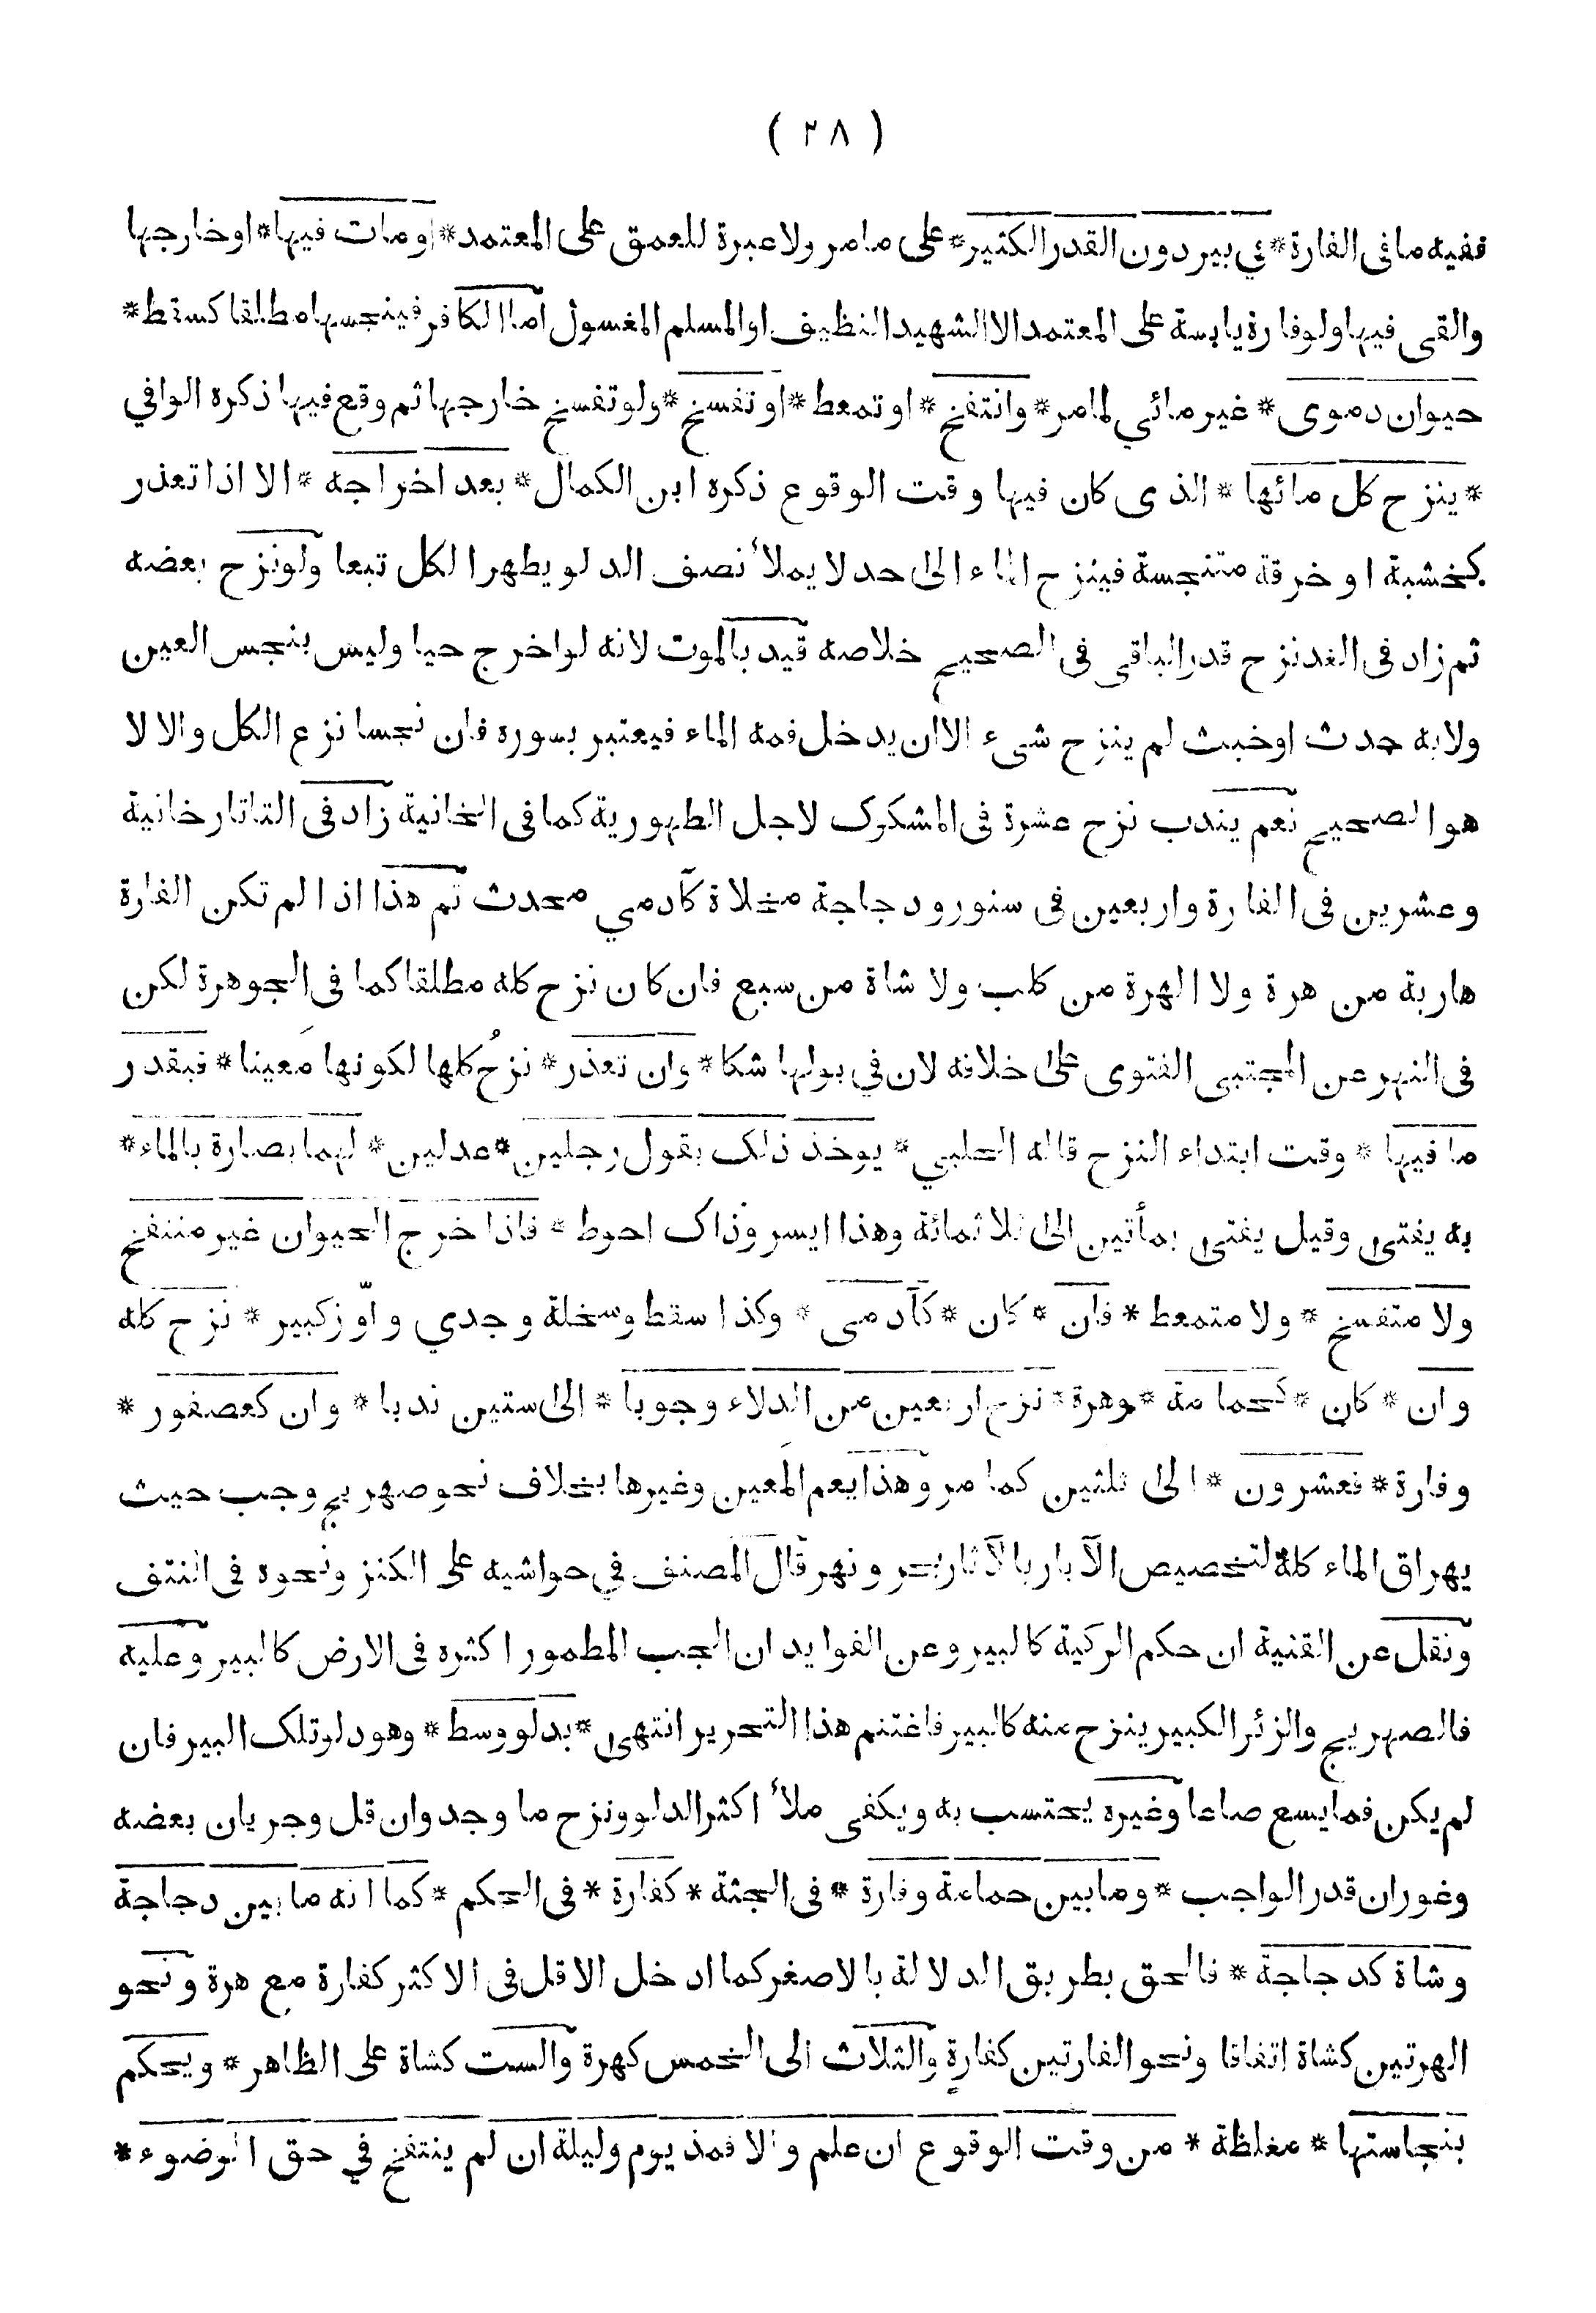 ( ٢٨ )
ففيه ما فى الفارة * في بير دون القدر الكثير * على ما مر ولا عبرة للعمق على المعتمد * او مات فيها * او خارجها
والقى فيها ولو فارة يابسة على المعتمد الا الشهيد النظيف او المسلم المغسول اما الكافر فينجسها مطلقا كسقط *
حيوان دموى * غير مائي لما مر * وانتفخ * او تمعط * او تفسخ * ولو تفسخ خارجها ثم وقع فيها ذكره الوافي
* ينزح كل مائها * الذى كان فيها وقت الوقوع ذكره ابن الكمال * بعد اخراجه * الا اذا تعذر
كخشبة او خرقة متنجسة فينزح الماء الى حد لا يملأ نصف الدلو يطهر الكل تبعا ولو نزح بعضه
ثم زاد فى الغد نزح قدر الباقى فى الصحيح خلاصه قيد بالموت لانه لو اخرج حيا وليس بنجس العين
ولا به حدث او خبث لم ينزح شىء الا ان يدخل فمه الماء فيعتبر بسوره فان نجسا نزع الكل والا لا
هو الصحيح نعم يندب نزح عشرة فى المشكوك لاجل الطهورية كما فى الخانية زاد فى التاتارخانية
وعشرين فى الفارة واربعين فى سنور ودجاجة مخلاة كآدمي محدث ثم هذا اذا لم تكن الفارة
هاربة من هرة ولا الهرة من كلب ولا شاة من سبع فان كان نزح كله مطلقا كما فى الجوهرة لكن
فى النهر عن المجتبى الفتوى على خلافه لان في بولها شكا * وان تعذر * نزحُ كلها لكونها مَعينا * فبقدر
ما فيها * وقت ابتداء النزح قاله الحلبي * يوخذ ذلك بقول رجلين * عدلين * لهما بصارة بالماء *
به يفتى وقيل يفتى بمأتين الى ثلاثمائة وهذا ايسر وذاك احوط * فاذا خرج الحيوان غير منتفخ
ولا متفسخ * ولا متمعط * فان * كان * كآدمى * وكذا سقط وسخلة وجدي واوّز كبير * نزح كله
وان * كان * كحمامة * وهرة * نزح اربعين من الدلاء وجوبا * الى ستين ندبا * وان كعصفور *
وفارة * فعشرون * الى ثلثين كما مر وهذا يعم المَعين وغيرها بخلاف نحو صهريج وجب حيث
يهراق الماء كله لتخصيص الآبار بالآثار بحر ونهر قال المصنف في حواشيه على الكنز ونحوه فى النتف
ونقل عن القنية ان حكم الركية كالبير وعن الفوايد ان الجب المطمور اكثره فى الارض كالبير وعليه
فالصهريج والزئر الكبير ينزح منه كالبير فاغتنم هذا التحرير انتهى * بدلو وسط * وهو دلو تلك البير فان
لم يكن فما يسع صاعا وغيره يحتسب به ويكفى ملأ اكثر الدلو ونزح ما وجد وان قل وجريان بعضه
وغوران قدر الواجب * وما بين حمامة وفارة * فى الجثة * كفارة * فى الحكم * كما انه ما بين دجاجة
وشاة كدجاجة * فالحق بطريق الدلالة بالاصغر كما ادخل الاقل فى الاكثر كفارة مع هرة ونحو
الهرتين كشاة اتفاقا ونحو الفارتين كفارة والثلاث الى الخمس كهرة والست كشاة على الظاهر * ويحكم
بنجاستها * مغلظة * من وقت الوقوع ان علم والا فمذ يوم وليلة ان لم ينتفخ في حق الوضوء *